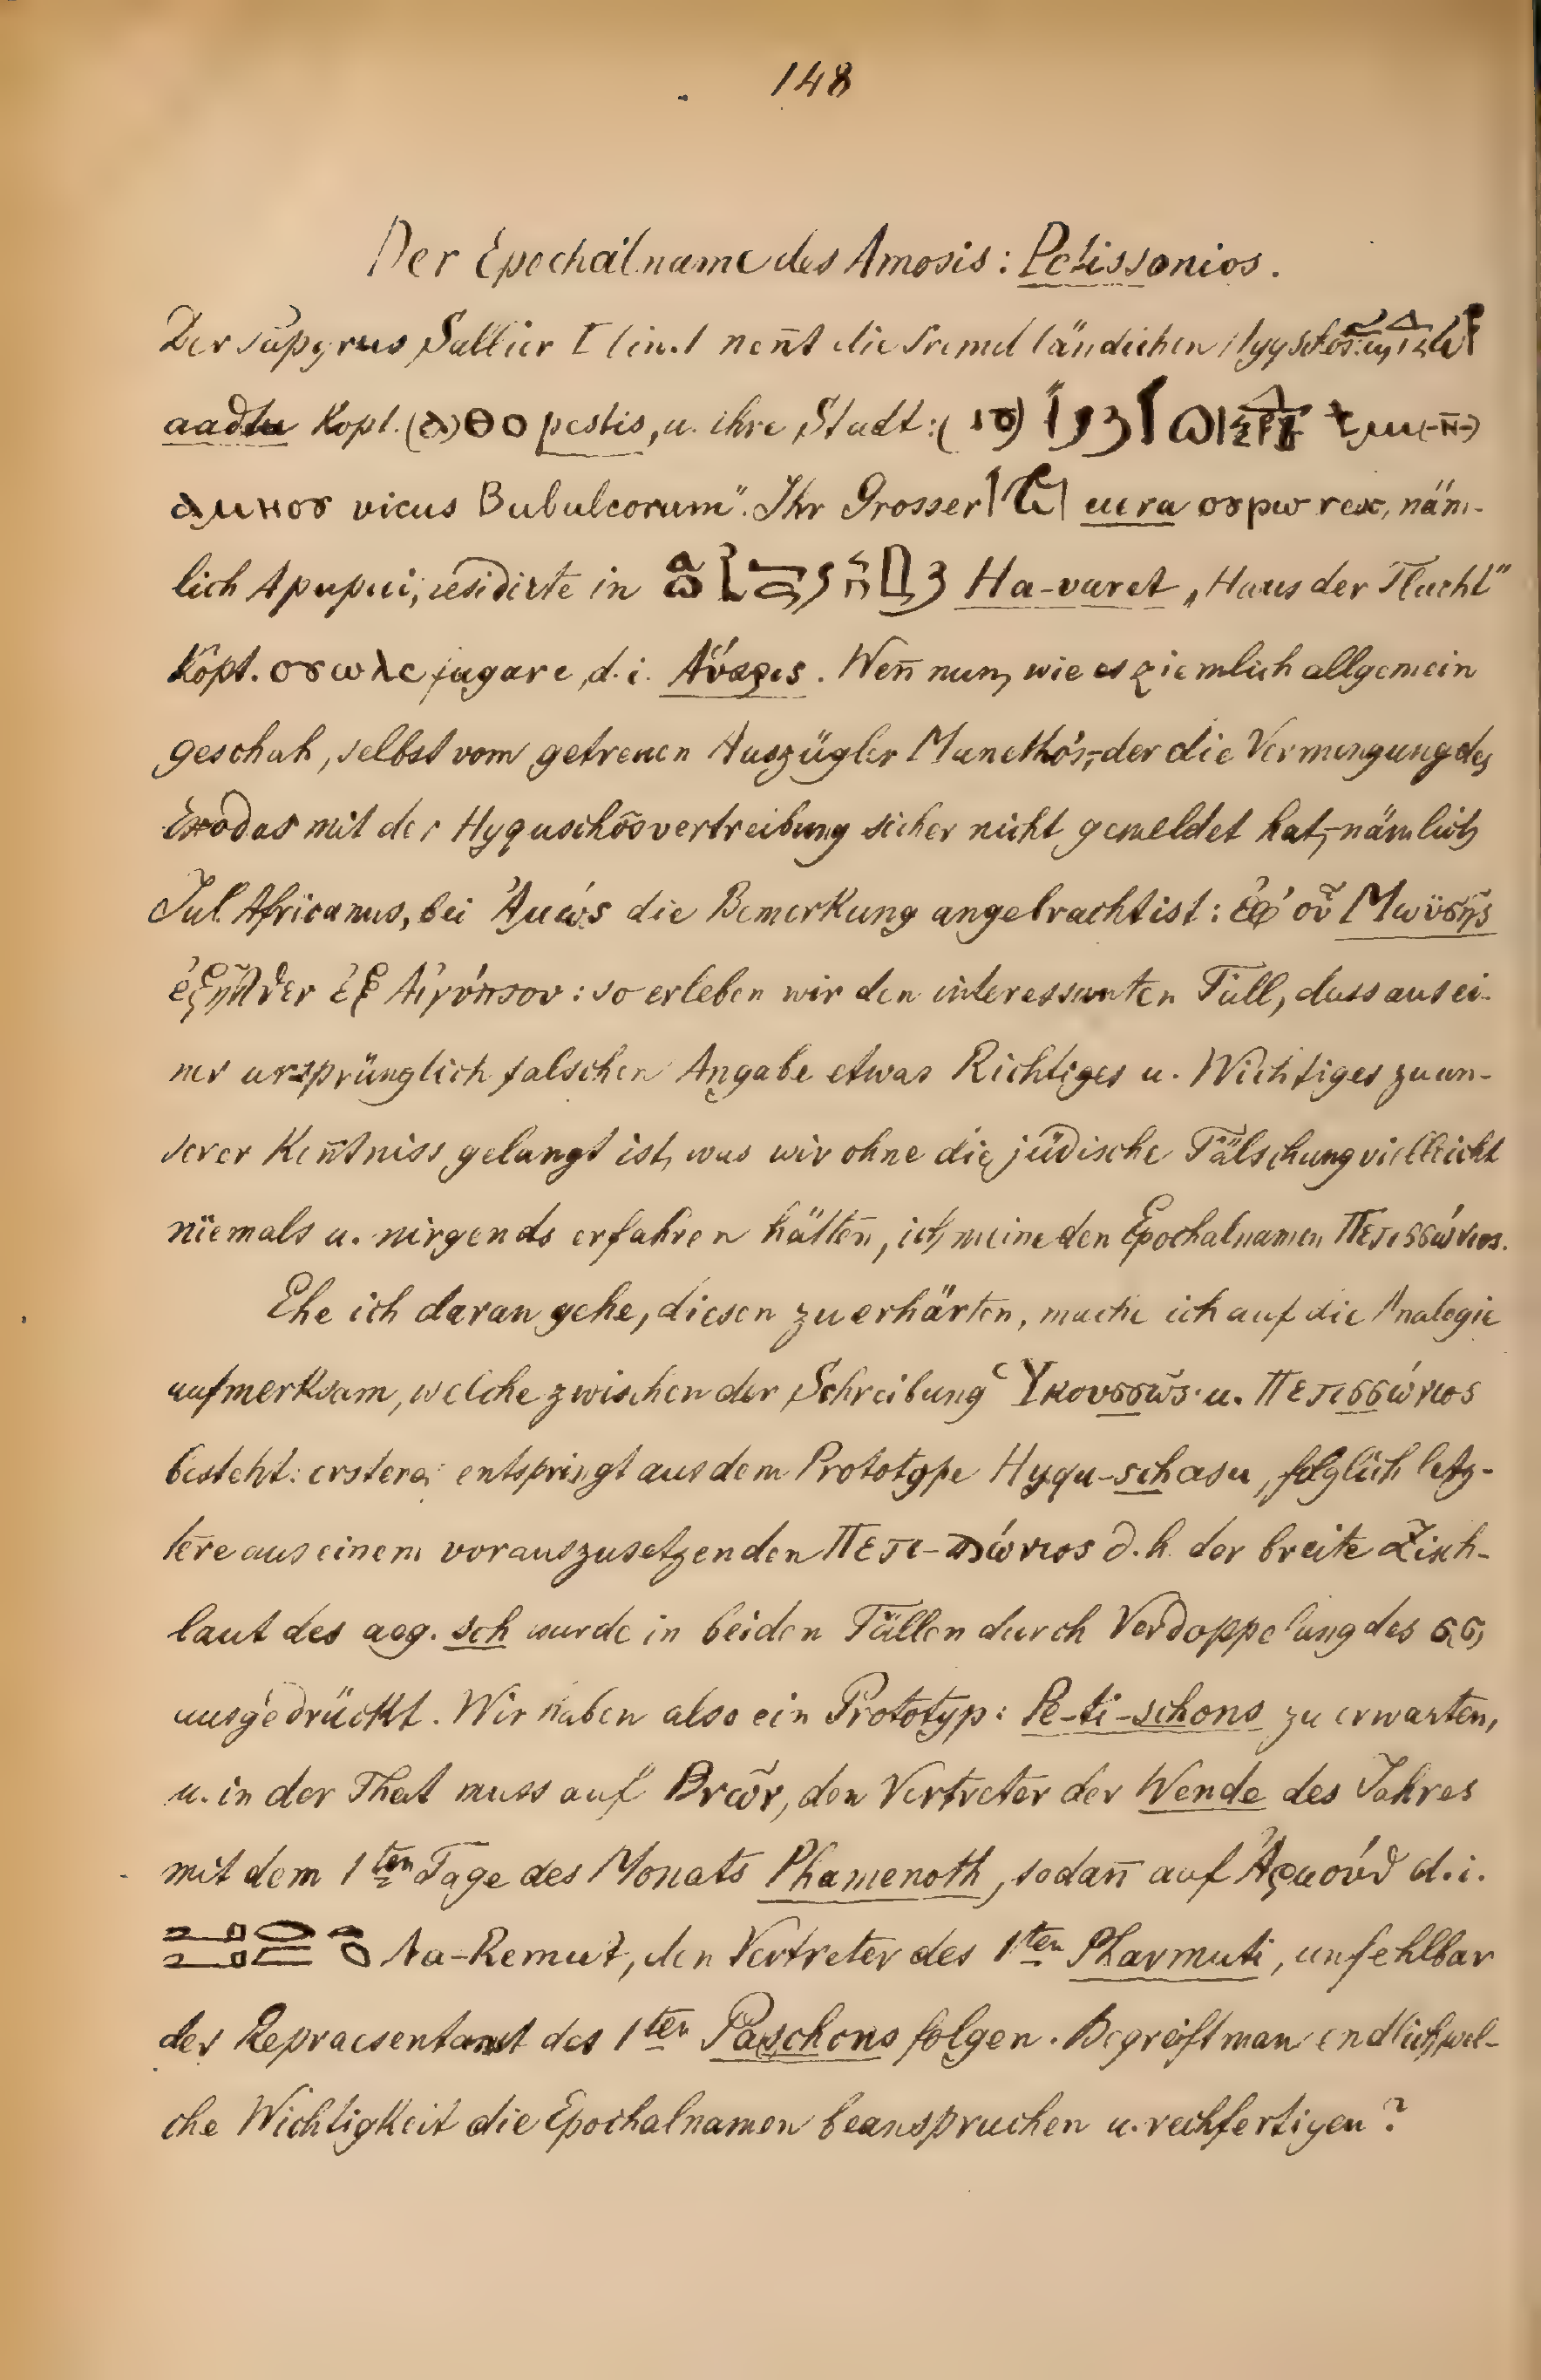 148
Der Epochalname des Amosis: Petissonios.
Der Papyrus Sallier I lin. 1 nen̄t die fremdländischen Hyqschōs:
aadtu Kopt. (ⲁ)ⲑⲟ pestis, u. ihre Stadt:
ⲁⲙⲏⲟⲩ vicus Bubulcorum". Ihr Grosser ura ⲟⲩⲣⲱ rex, näm-
lich Apupui, residirte in Ha-varet „Haus der Flucht"
Kopt. ⲟⲩⲱⲗⲉ fugare, d. i. Αὔαρις. Wen̄ nun, wie es ziemlich allgemein
geschah, selbst vom getreuen Auszügler Manethó's,-der die Vermengung des
Exodus mit der Hyquschōsvertreibung sicher nicht gemeldet hat,-nämlich
Jul. Africanus, bei Ἀμώς die Bemerkung angebracht ist: ἐφ' οὗ Μωϋσῆς
ἐξῆλθεν ἐξ Αἰγύπτου: so erleben wir den interessanten Fall, dass aus ei-
ner ursprünglich falschen Angabe etwas Richtiges u. Wichtiges zu un-
serer Ken̄tniss gelangt ist, was wir ohne die jüdische Fälschung vielleicht
niemals u. nirgends erfahren hätten, ich meine den Epochalnamen Πετισσώνιος.
Ehe ich daran gehe, diesen zu erhärten, mache ich auf die Analogie
aufmerksam, welche zwischen der Schreibung Ὑκουσσῶς u. Πετισσώνιος
besteht: erstere entspringt aus dem Prototype Hyqu-schasu, folglich letz-
tere aus einem vorauszusetzenden Πετι-ϣώνιος d. h. der breite Zisch-
laut des aeg. sch wurde in beiden Fällen durch Verdoppelung des σ, σσ,
ausgedrückt. Wir haben also ein Prototyp: Pe-ti-schons zu erwarten,
u. in der That muss auf Βνῶν, den Vertreter der Wende des Jahres
mit dem 1ten Tage des Monats Phamenoth, sodan̄ auf Ἀρμούθ d. i.
Aa-Remut, den Vertreter des 1ten Pharmuti, unfehlbar
der Repraesentant des 1ten Paschons folgen. Begreift man endlich, wel-
che Wichtigkeit die Epochalnamen beanspruchen u. rechfertigen?